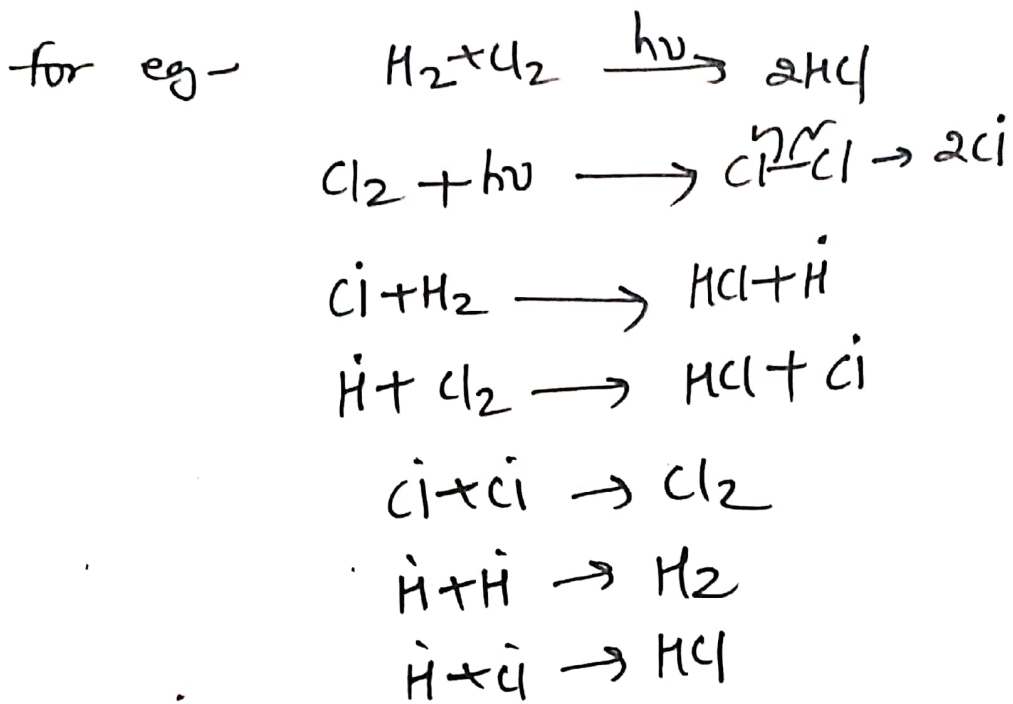 for eg - H₂+Cl₂ —hν→ 2HCl
Cl₂ + hν → Cl–Cl → 2Cl̇
Cl̇ + H₂ → HCl + Ḣ
Ḣ + Cl₂ → HCl + Cl̇
Cl̇ + Cl̇ → Cl₂
Ḣ + Ḣ → H₂
Ḣ + Cl̇ → HCl